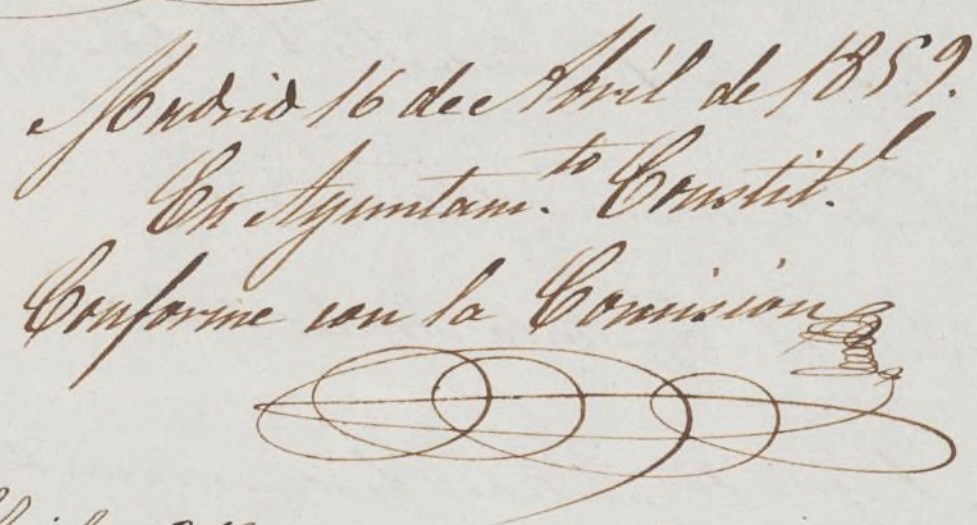 Madrid 16 de Abril de 1859.
En Ayuntam.to Constit.l
Conforme con la Comision